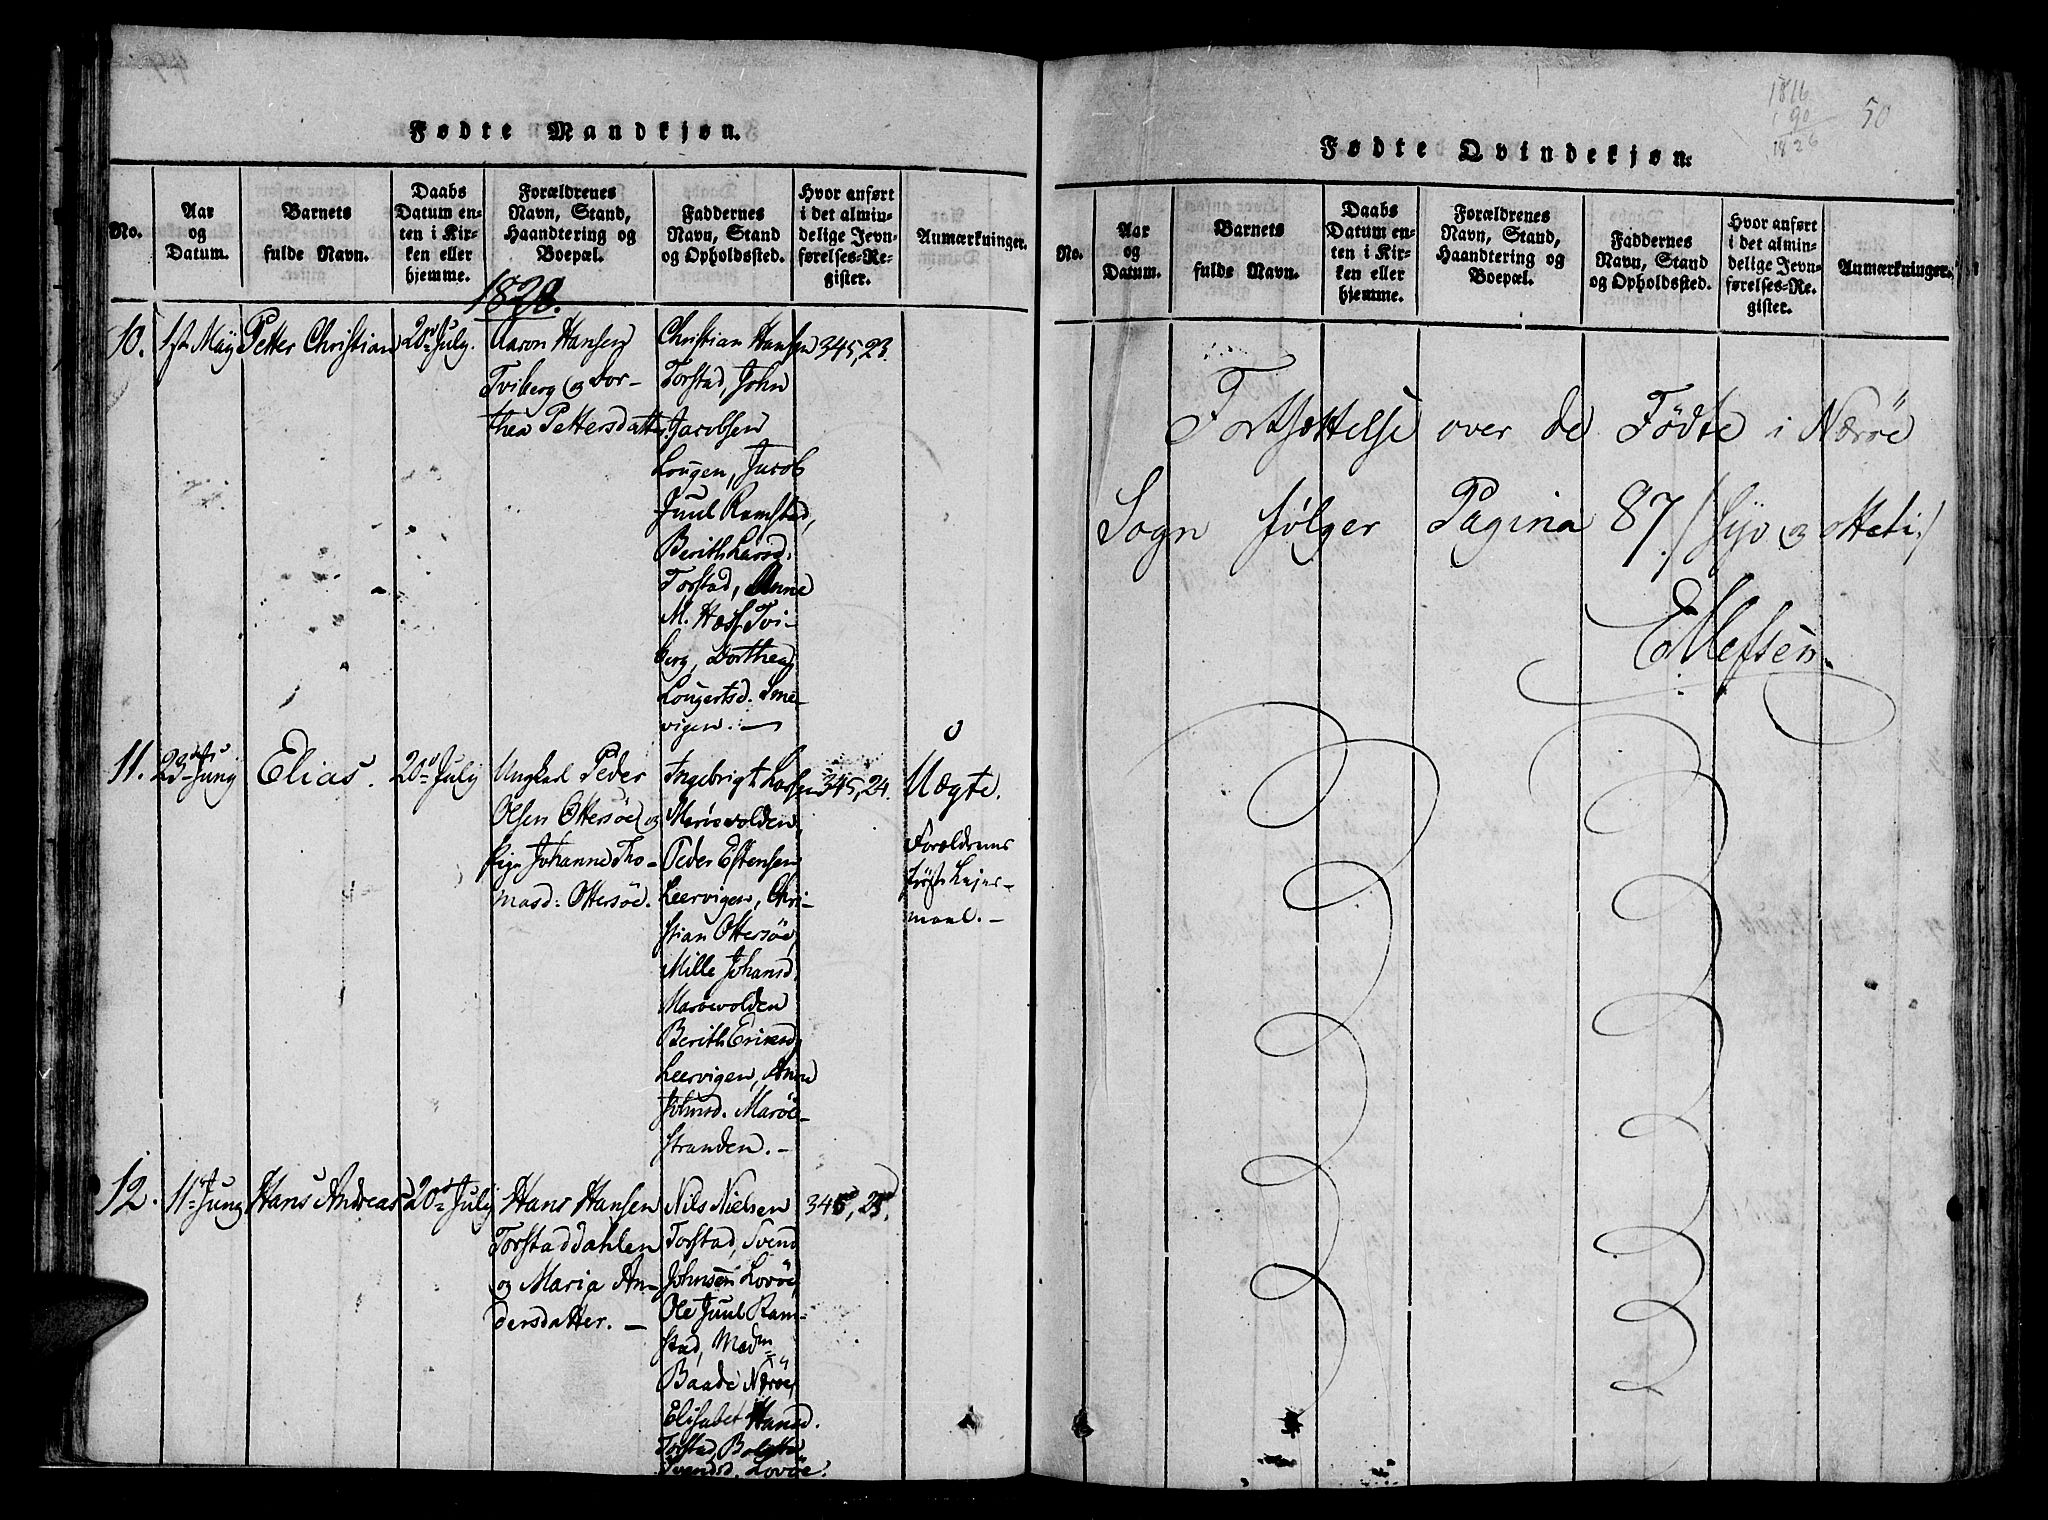 Fødte Mandkjøn.
No.
Aar
og
Datum.
Barnets
fulde Navn.
Daabs
Datum en-
ten i Kir-
ken eller
hjemme.
Forældrenes
Navn, Stand,
Haandtering og
Boepæl.
Faddernes
Navn, Stand
og Opholdssted.
Hvor anført
i det almin-
delige Jevn-
førelses-Re-
gister.
Anmærkninger.
1820.
10.
1ste May
Petter Christian
20de July.
Aaron Hansen
Tviberg og Dor-
thea Pettersdatter.
Christian Hansen
Torstad, John
Jacobsen
Lougen, Jacob
Juul Ramstad,
Berith Larsd:
Torstad, Anne
M. Hass Tvi-
berg, Dorthea
Lougertsd. Sme-
vigen. —
345, 23.
11.
23de Juny
Elias.
20de July
Ungkarl Peder
Olsen Ottersøe og
Pige Johanne Tho-
masd: Ottersøe.
Ingebrigt Larsen
Marøevolden,
Peder Estensen
Leervigen, Chri-
stian Ottersøe,
Mille Johansd.
Marøevolden
Berith Ericksd.
Leervigen, Anne
Johnsd. Marøe-
stranden. —
345, 24.
Uægte.
Forældrenes
første Lejer-
maal. —
12.
11te Juny
Hans Andreas
20de July
Hans Hansen
Torstaddahlen
og Maria An-
dersdatter. —
Nils Nielsen
Torstad, Svend
Johnsen Lovøe,
Ole Juul Ram-
stad, Madm
Baade Nærøe,
Elisabet Hansd.
Torstad,
Svendsd. Lovøe.
345, 25.
1816
90
1826
50
Fødte Qvindekjøn.
No.
Aar
og
Datum.
Barnets
fulde Navn.
Daabs
Datum en-
ten i Kir-
ken eller
hjemme.
Forældrenes
Navn, Stand,
Haandtering og
Boepæl.
Faddernes
Navn, Stand
og Opholdssted.
Hvor anført
i det almin-
delige Jevn-
førelses-Re-
gister.
Anmærkninger.
Fortsættelse over de Fødte i Nærøe
Sogn følger Pagina 87 /: Syv og otteti :/
Ellefsen.